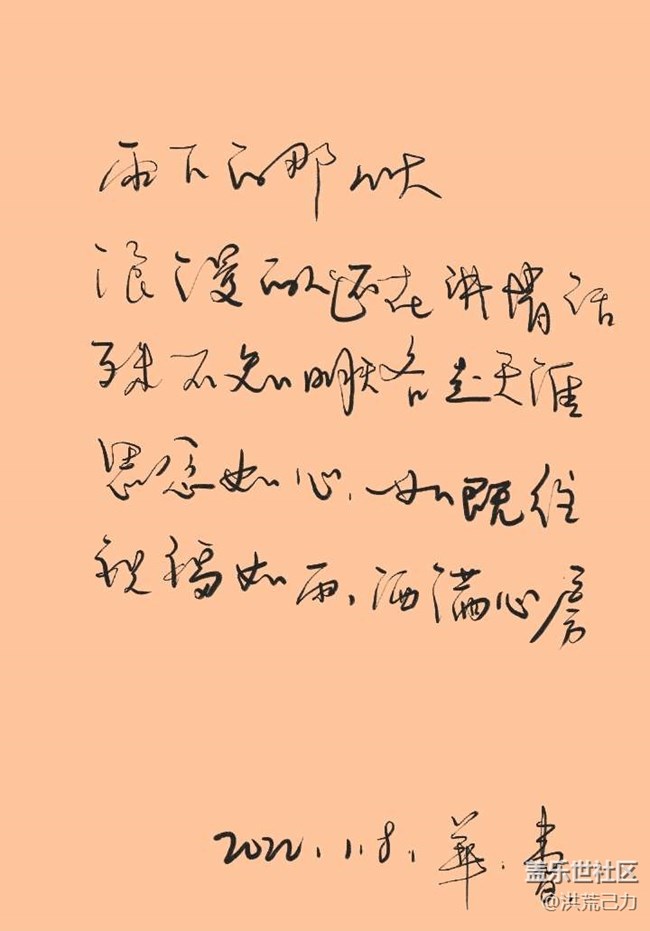 雨下的那一天
浪漫的人还在讲情话
殊不知明天各走天涯
思念如心,一如既往
祝福如雨,洒满心房
2022.1.8. 華.書
盖乐世社区
@洪荒己力